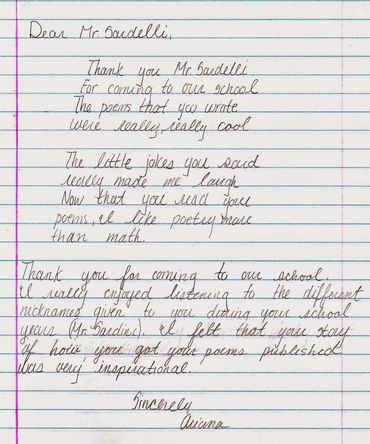 Dear Mr. Sardelli,
Thank you Mr. Sardelli
For coming to our school
The poems that you wrote
were really, really cool
The little jokes you said
really made me laugh
Now that you read your
poems, I like poetry more
than math.
Thank you for coming to our school.
I really enjoyed listening to the different
nicknames given to you during your school
years (Mr. Sardini). I felt that your story
of how you got your poems published
was very inspirational.
Sincerely
Ariana